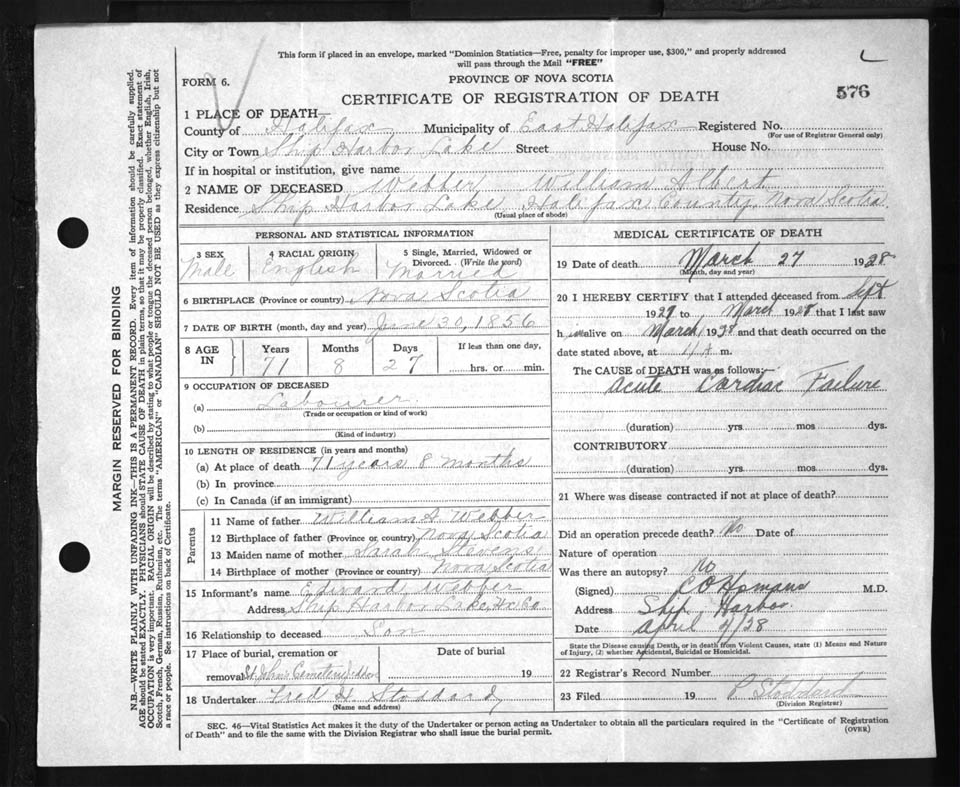 This form if placed in an envelope, marked "Dominion Statistics—Free, penalty for improper use, $300," and properly addressed
will pass through the Mail "FREE"
FORM 6.
PROVINCE OF NOVA SCOTIA
576
CERTIFICATE OF REGISTRATION OF DEATH
1 PLACE OF DEATH—
County of Halifax Municipality of East Halifax Registered No.
(For use of Registrar General only)
City or Town Ship Harbor Lake Street House No.
If in hospital or institution, give name
2 NAME OF DECEASED Webber, William Albert
Residence Ship Harbor Lake, Halifax County, Nova Scotia
(Usual place of abode)
PERSONAL AND STATISTICAL INFORMATION
3 SEX Male
4 RACIAL ORIGIN English
5 Single, Married, Widowed or
Divorced. (Write the word)
Married
6 BIRTHPLACE (Province or country) Nova Scotia
7 DATE OF BIRTH (month, day and year) June 30, 1856
8 AGE IN Years 71 Months 8 Days 27 If less than one day, hrs. or min.
9 OCCUPATION OF DECEASED
(a) Labourer
(Trade or occupation or kind of work)
(b)
(Kind of industry)
10 LENGTH OF RESIDENCE (in years and months)
(a) At place of death 71 years 8 months
(b) In province
(c) In Canada (if an immigrant)
Parents
11 Name of father William A Webber
12 Birthplace of father (Province or country) Nova Scotia
13 Maiden name of mother Sarah Stevens
14 Birthplace of mother (Province or country) Nova Scotia
15 Informant's name Edward Webber
Address Ship Harbor Lake Hx. Co.
16 Relationship to deceased Son
17 Place of burial, cremation or
removal St. John's Cemetery
Date of burial
19
18 Undertaker Fred H. Stoddard
(Name and address)
MEDICAL CERTIFICATE OF DEATH
19 Date of death March 27 1928
(Month, day and year)
20 I HEREBY CERTIFY that I attended deceased from Sept
1927 to March 1928 that I last saw
h im alive on March 1928 and that death occurred on the
date stated above, at 11 m.
The CAUSE of DEATH was as follows:—
Acute Cardiac Failure
(duration) yrs mos dys.
CONTRIBUTORY
(duration) yrs mos dys.
21 Where was disease contracted if not at place of death?
Did an operation precede death? No Date of
Nature of operation
Was there an autopsy? No
(Signed) M.D.
Address Ship Harbor
Date April 4/28
State the Disease causing Death, or in death from Violent Causes, state (1) Means and Nature
of Injury, (2) whether Accidental, Suicidal or Homicidal.
22 Registrar's Record Number
23 Filed 19 P Stoddard
(Division Registrar)
SEC. 46—Vital Statistics Act makes it the duty of the Undertaker or person acting as Undertaker to obtain all the particulars required in the "Certificate of Registration
of Death" and to file the same with the Division Registrar who shall issue the burial permit.
(OVER)
MARGIN RESERVED FOR BINDING
N.B.—WRITE PLAINLY WITH UNFADING INK—THIS IS A PERMANENT RECORD. Every item of information should be carefully supplied.
AGE should be stated EXACTLY. PHYSICIANS should STATE CAUSE OF DEATH in plain terms, so that it may be properly classified. Exact statement of
OCCUPATION is very important. RACIAL ORIGIN will be described by stating to what people or tongue the deceased person belonged, whether English, Irish,
Scotch, French, German, Russian, Ruthenian, etc. The terms "AMERICAN" or "CANADIAN" SHOULD NOT BE USED as they express citizenship but not
a race or people. See instructions on back of Certificate.